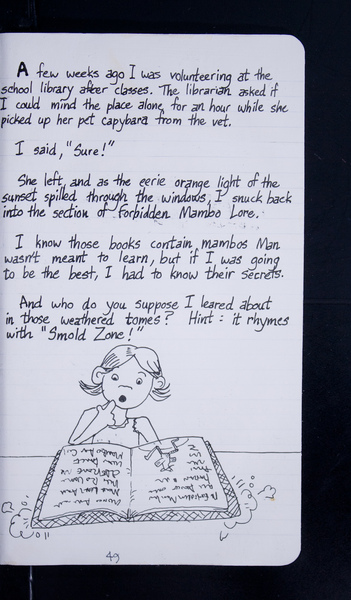 A few weeks ago I was volunteering at the
school library after classes. The librarian asked if
I could mind the place alone for an hour while she
picked up her pet capybara from the vet.
I said, "Sure!"
She left, and as the eerie orange light of the
sunset spilled through the windows, I snuck back
into the section of forbidden Mambo Lore.
I know those books contain mambos Man
wasn't meant to learn, but if I was going
to be the best, I had to know their secrets.
And who do you suppose I leared about
in those weathered tomes? Hint: it rhymes
with "Smold Zone!"
49